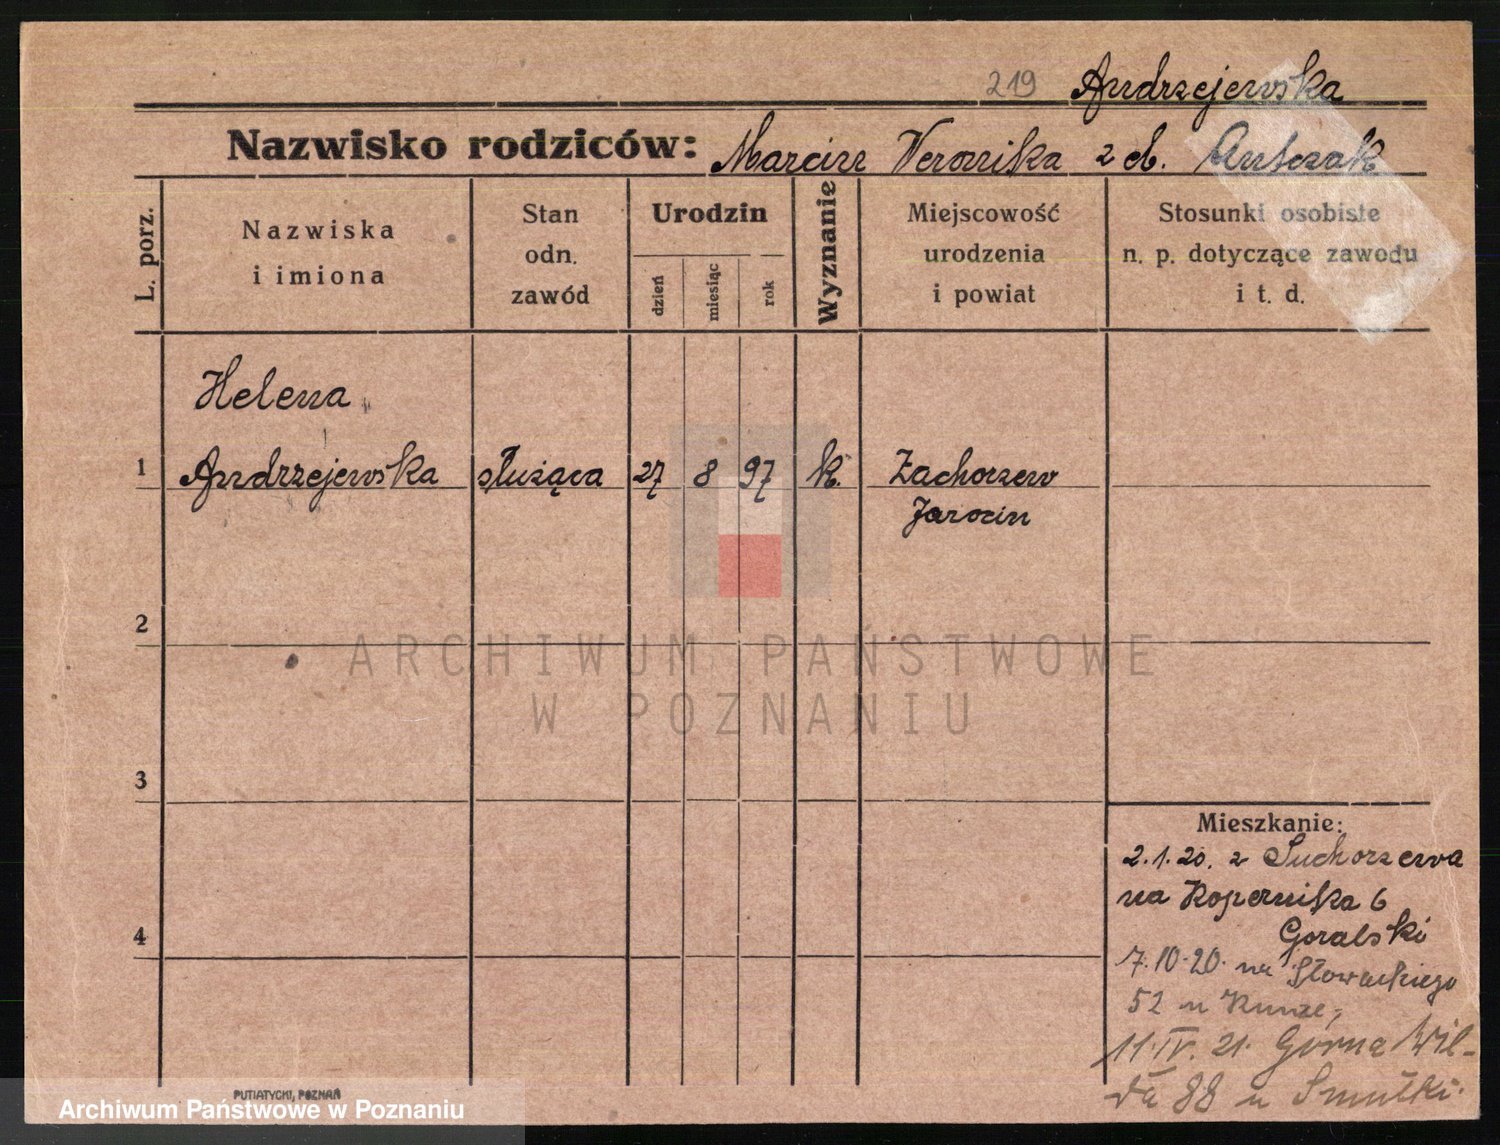 219 Andrzejewska
Nazwisko rodziców: Marcin Weronika z d. Antczak
L. porz.
Nazwiska
i imiona
Stan
odn.
zawód
Urodzin
dzień
miesiąc
rok
Wyznanie
Miejscowość
urodzenia
i powiat
Stosunki osobiste
n. p. dotyczące zawodu
i t. d.
Helena
1 Andrzejewska służąca 27 8 97 k. Zachorzew
Jarocin
2
3
4
Mieszkanie:
2.1.20. z Suchorzewa
na Kopernika 6
Goralski
7.10.20. na Słowackiego
52 u Kunze,
11.IV.21. Górna Wil-
da 88 u Smulki.
PUTIATYCKI, POZNAŃ
ARCHIWUM PAŃSTWOWE
W POZNANIU
Archiwum Państwowe w Poznaniu